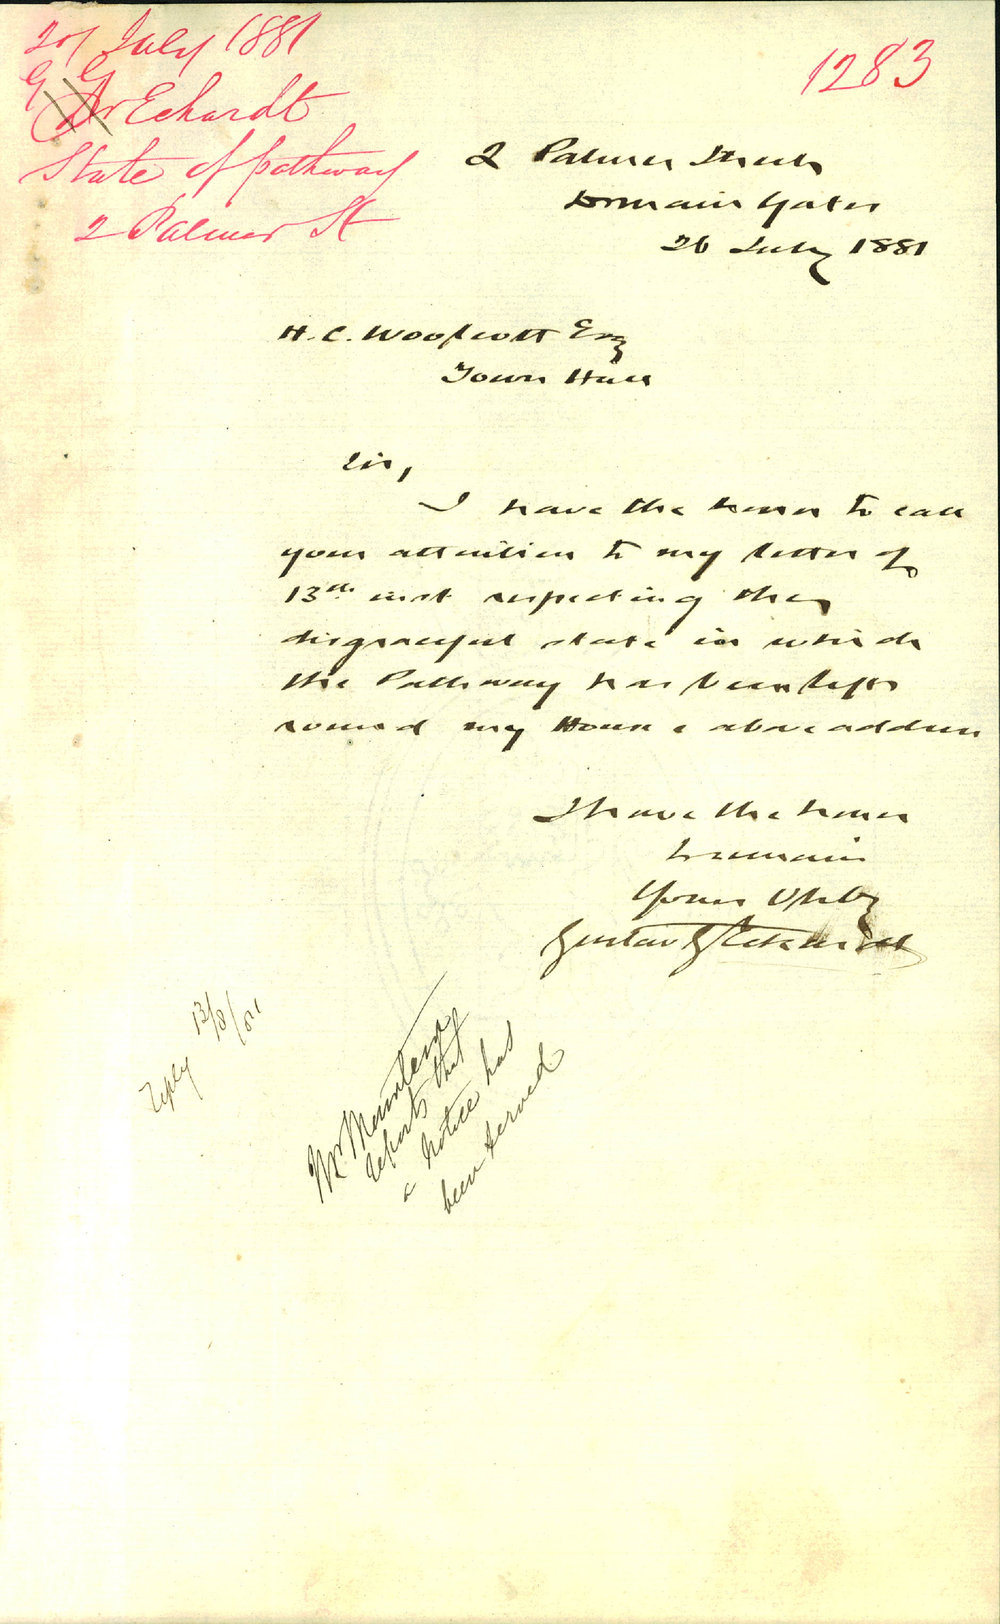 27 July 1881
G G Echardt
State of pathway
2 Palmer St
1283
2 Palmer Street
Domain Gates
26 July 1881
H. C. Woolcott Esq
Town Hall
Sir,
I have the honor to call
your attention to my letter of
13th inst respecting the
disgraceful state in which
the Pathway has been left
round my House above address
I have the honor
to remain
Yours Obtly
Gustav G Eckardt
Reply 13/8/81
Mr Mountern
reports that
a notice has
been served